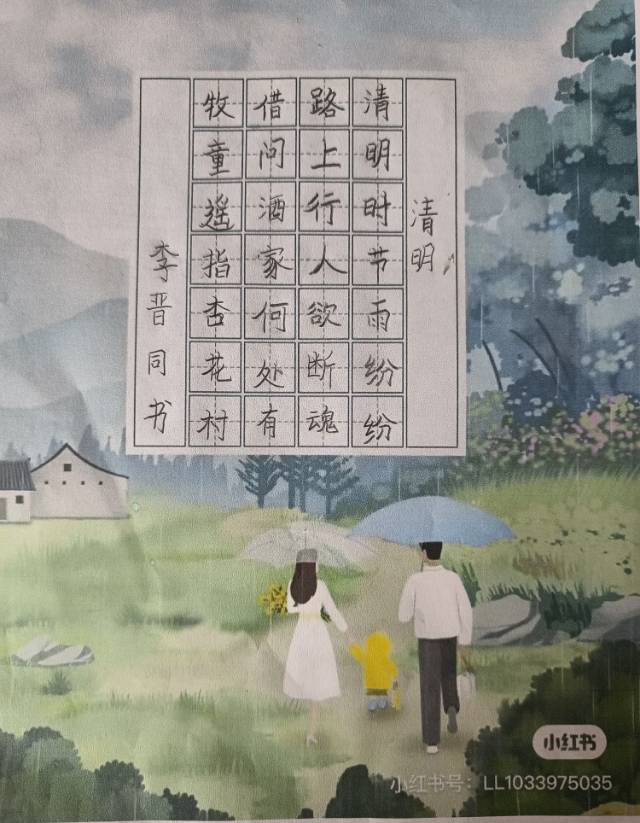 清明
清明时节雨纷纷
路上行人欲断魂
借问酒家何处有
牧童遥指杏花村
李晋同书
小红书
小红书号：LL1033975035